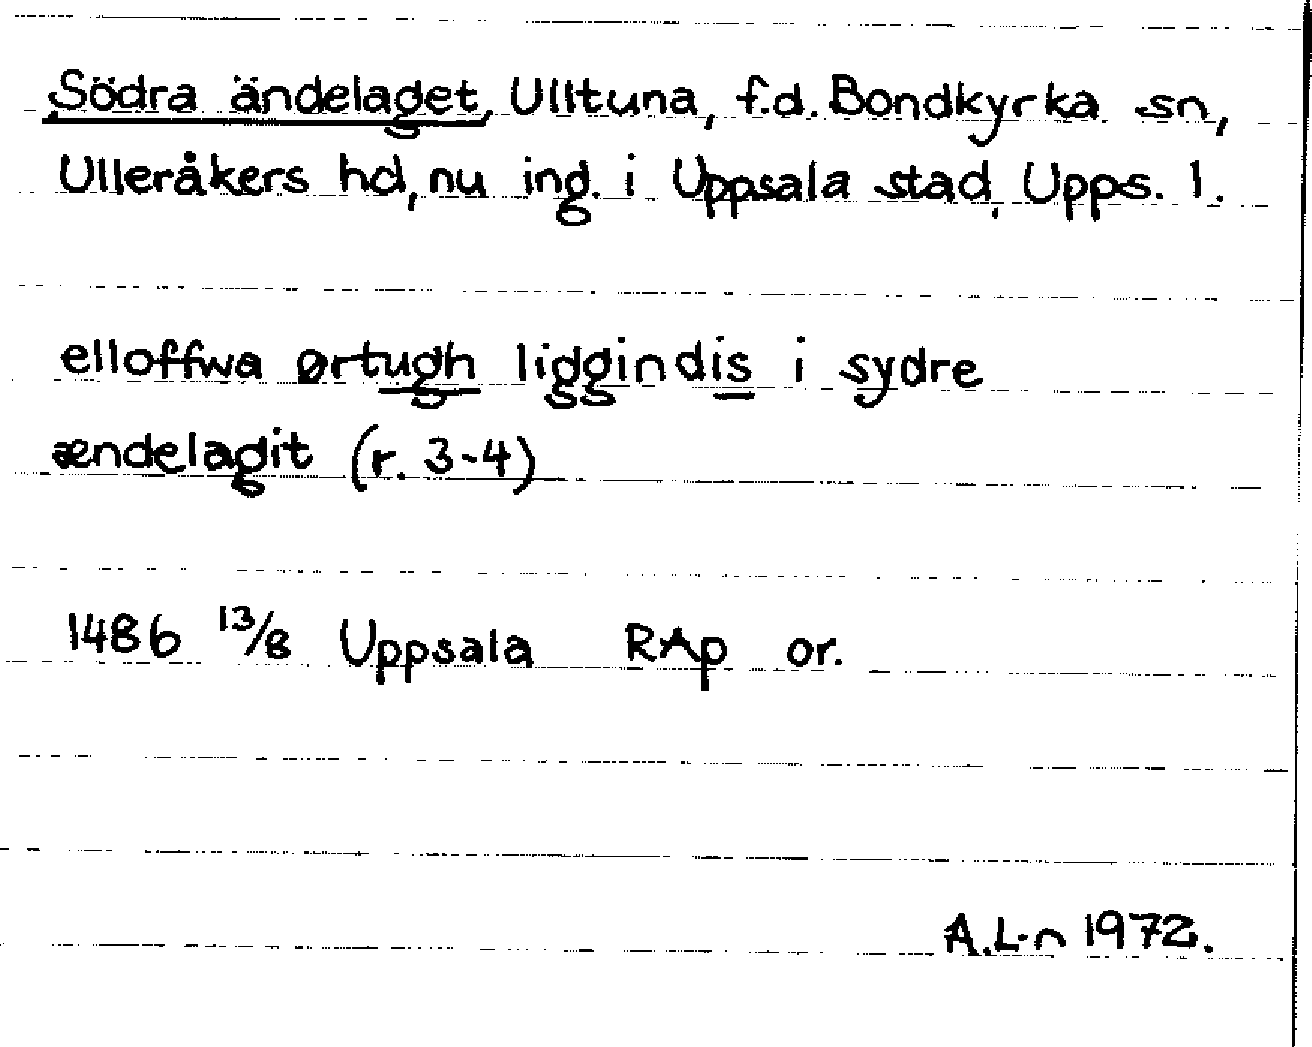 Södra ändelaget, Ulltuna, f.d. Bondkyrka sn,
Ulleråkers hd, nu ing. i Uppsala stad, Upps. l.
elloffwa ørtugh liggindis i sydre
ændelagit (r. 3-4)
1486 13/8 Uppsala RAp or.
A.L-n 1972.